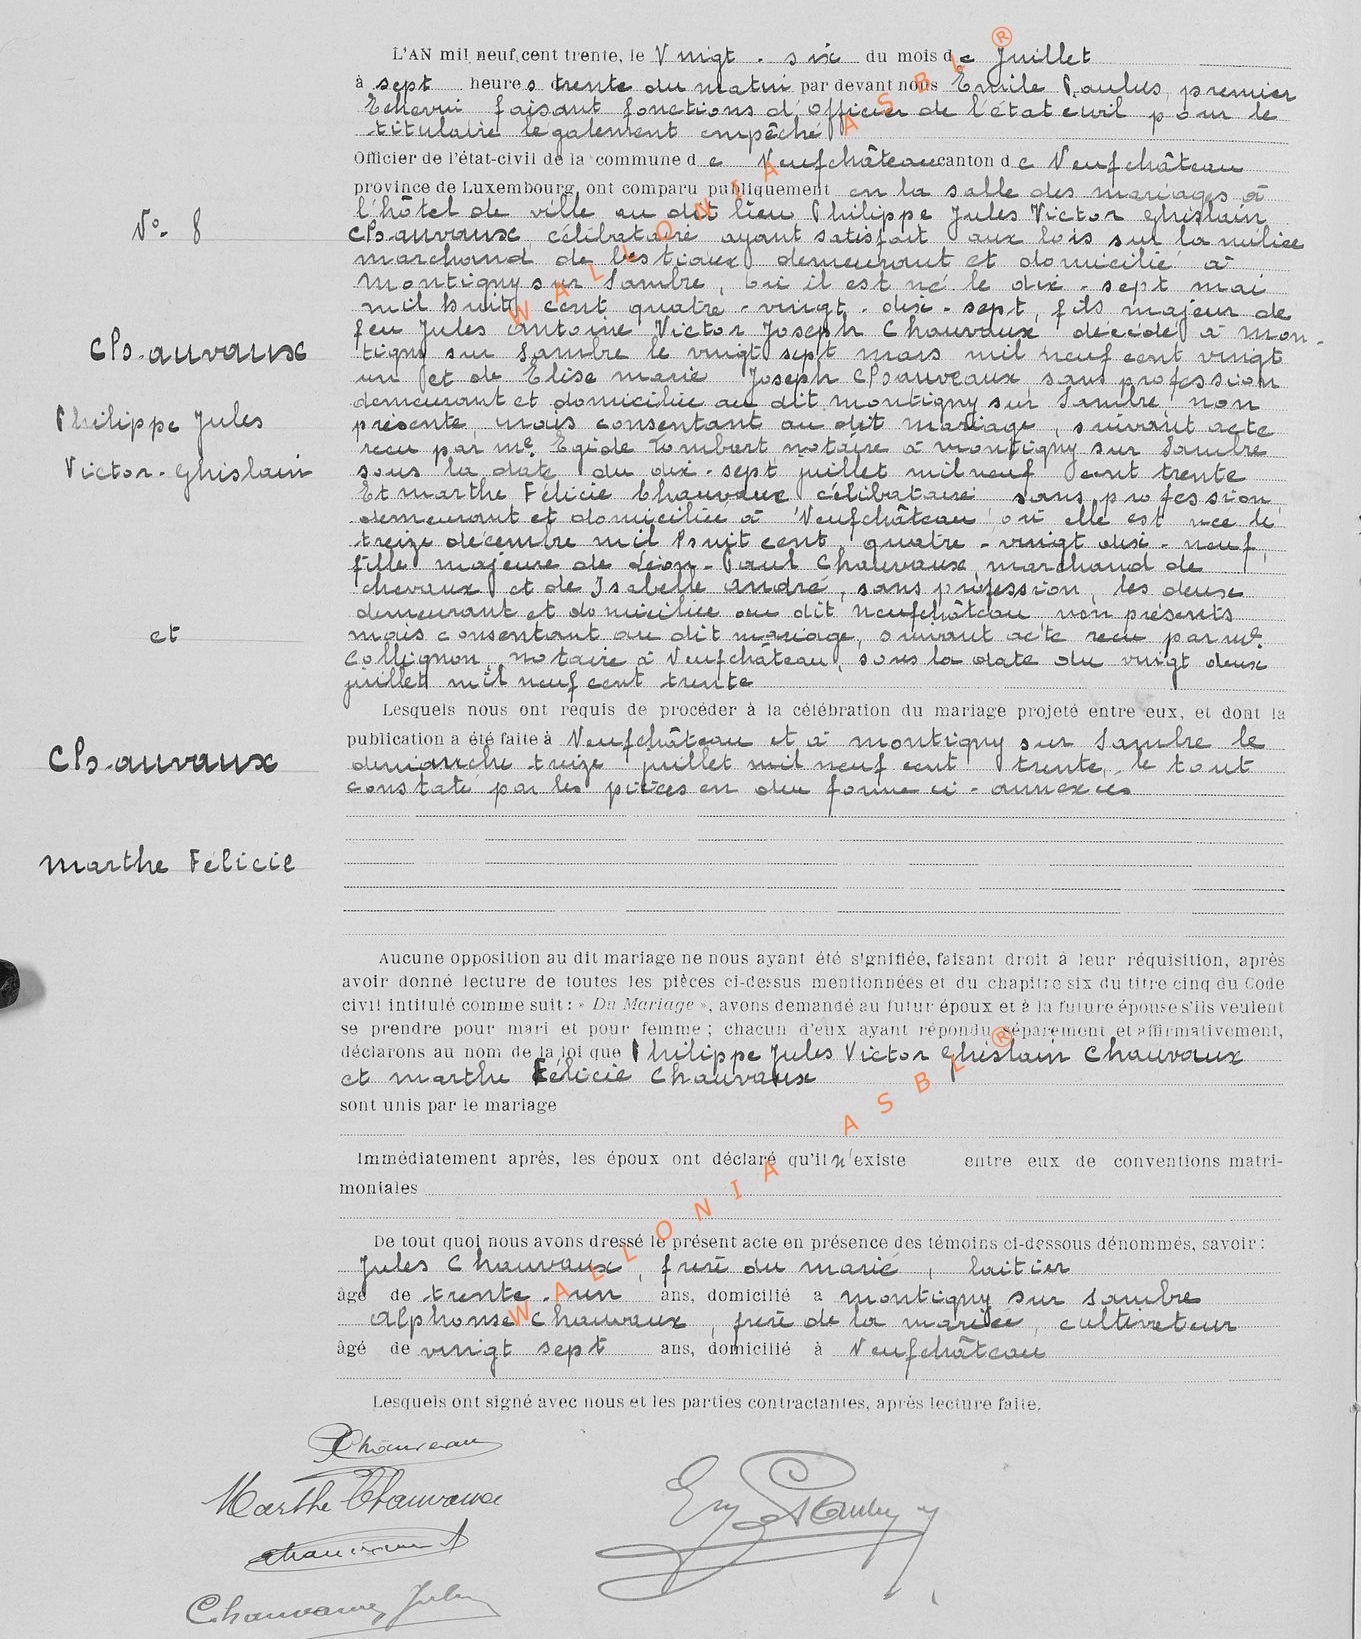 L'AN mil neuf cent trente, le Vingt-six du mois de Juillet
à sept heures trente du matin par devant nous Emile Paulus, premier
Echevin faisant fonctions d'Officier de l'état civil pour le
titulaire légalement empêché
Officier de l'état-civil de la commune de Neufchâteau canton de Neufchâteau
province de Luxembourg, ont comparu publiquement en la salle des mariages à
l'hôtel de ville au dit lieu Philippe Jules Victor Ghislain
N° 8
Chauvaux, célibataire ayant satisfait aux lois sur la milice
marchand de bestiaux demeurant et domicilié à
Montigny sur Sambre, où il est né le dix-sept mai
mil huit cent quatre-vingt-dix-sept, fils majeur de
feu Jules Antoine Victor Joseph Chauvaux décédé à Mon-
Chauvaux
tigny sur Sambre le vingt sept mars mil neuf cent vingt
un et de Elise Marie Joseph Chauveaux sans profession
demeurant et domiciliée au dit Montigny sur Sambre, non
Philippe Jules
présente, mais consentant au dit mariage, suivant acte
reçu par Me. Egide Lombart notaire à Montigny sur Sambre
Victor-Ghislain
sous la date du dix-sept juillet mil neuf cent trente
Et Marthe Félicie Chauvaux célibataire sans profession,
demeurant et domiciliée à Neufchâteau où elle est née le
treize décembre mil huit cent quatre-vingt dix-neuf,
fille majeure de Léon-Paul Chauvaux, marchand de
chevaux et de Isabelle André, sans profession, les deux
demeurant et domiciliée au dit Neufchâteau non présents
et
mais consentant au dit mariage, suivant acte reçu par Me.
Collignon, notaire à Neufchâteau, sous la date du vingt deux
juillet mil neuf cent trente
Lesquels nous ont requis de procéder à la célébration du mariage projeté entre eux, et dont la
publication a été faite à Neufchâteau et à Montigny sur Sambre le
Chauvaux
dimanche treize juillet mil neuf cent trente, le tout
constaté par les pièces en due forme ci-annexées
Marthe Félicie
Aucune opposition au dit mariage ne nous ayant été signifiée, faisant droit à leur réquisition, après
avoir donné lecture de toutes les pièces ci-dessus mentionnées et du chapitre six du titre cinq du Code
civil intitulé comme suit : « Du Mariage », avons demandé au futur époux et à la future épouse s'ils veulent
se prendre pour mari et pour femme ; chacun d'eux ayant répondu séparément et affirmativement,
déclarons au nom de la loi que Philippe Jules Victor Ghislain Chauvaux
et Marthe Félicie Chauvaux
sont unis par le mariage
Immédiatement après, les époux ont déclaré qu'il n'existe entre eux de conventions matri-
moniales
De tout quoi nous avons dressé le présent acte en présence des témoins ci-dessous dénommés, savoir :
Jules Chauvaux, frère du marié, laitier
âgé de trente-un ans, domicilié à Montigny sur Sambre
Alphonse Chauvaux, frère de la mariée, cultivateur
âgé de vingt sept ans, domicilié à Neufchâteau
Lesquels ont signé avec nous et les parties contractantes, après lecture faite.
Marthe Chauvaux
Chauvaux Jules
WALLONIA ASBL ®
WALLONIA ASBL ®